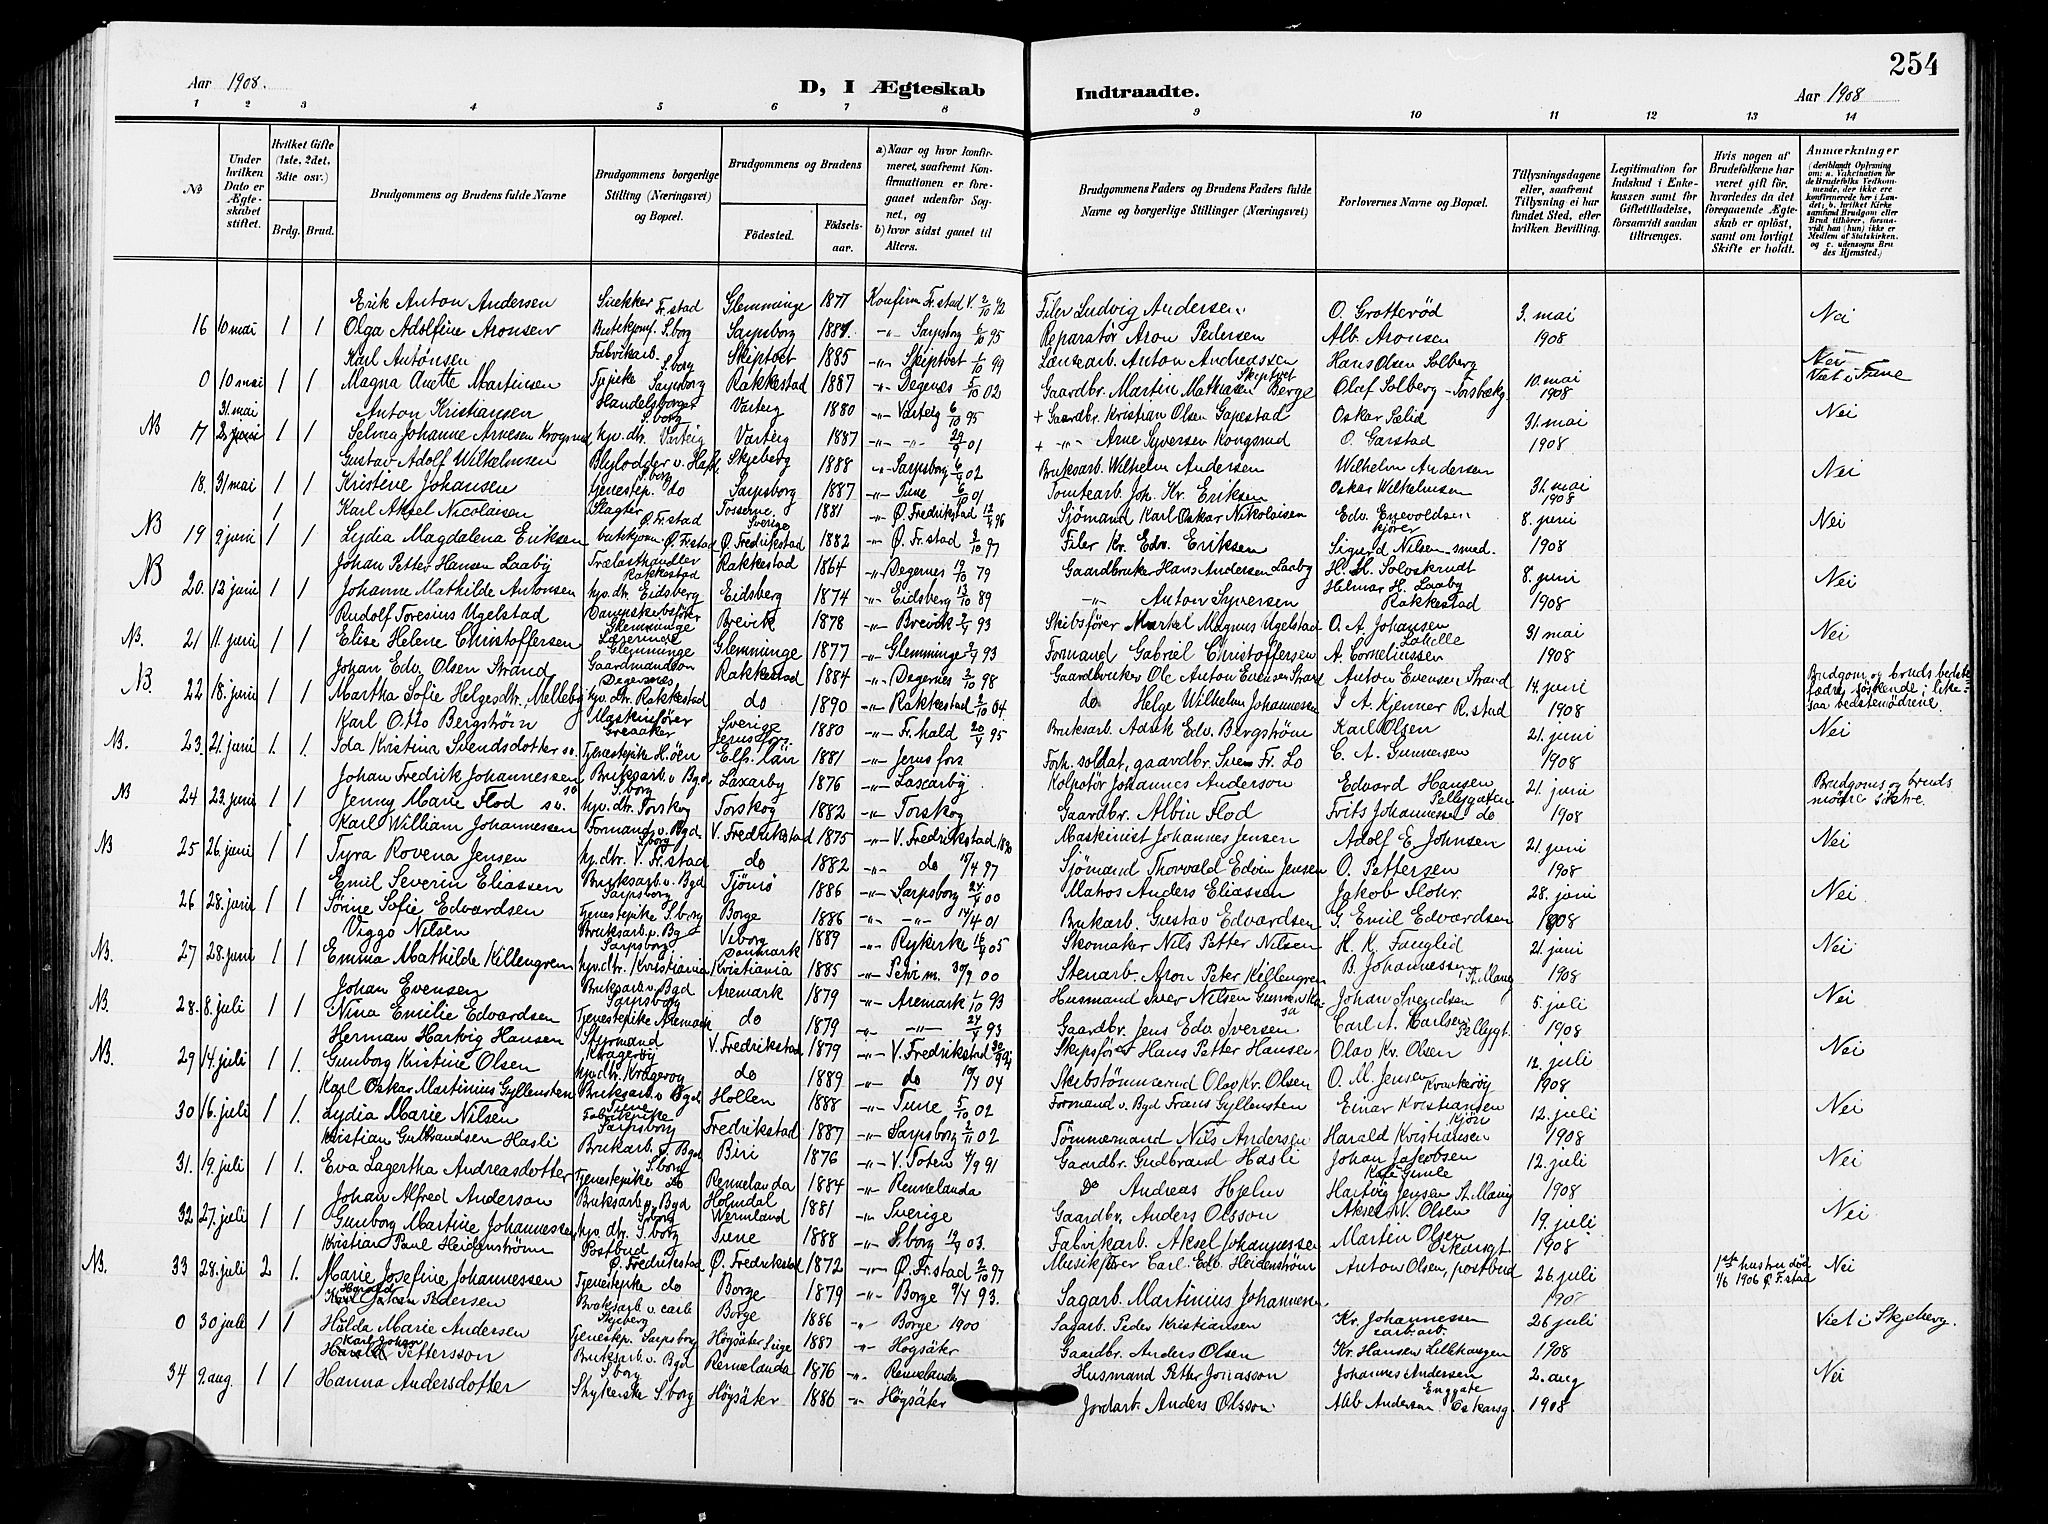 254
Aar 1908.
D, I Ægteskab
Indtraadte.
Aar 1908
1 2 3 4 5 6 7 8 9 10 11 12 13 14
No
Under hvilken Dato er Ægteskabet stiftet.
Hvilket Gifte (1ste, 2det, 3die osv.)
Brdg. Brud.
Brudgommens og Brudens fulde Navne
Brudgommens borgerlige Stilling (Næringsvei) og Bopæl.
Brudgommens og Brudens
Fødested.
Fødselsaar.
a) Naar og hvor konfirmeret, saafremt Konfirmationen er foregaaet udenfor Sognet, og
b) hvor sidst gaaet til Alters.
Brudgommens Faders og Brudens Faders fulde Navne og borgerlige Stillinger (Næringsvei)
Forlovernes Navne og Bopæl.
Tillysningsdagene eller, saafremt Tillysning ei har fundet Sted, efter hvilken Bevilling.
Legitimation for Indskud i Enkekassen samt for Giftetilladelse, forsaavidt saadan tiltrænges.
Hvis nogen af Brudefolkene har været gift før, hvorledes da det foregaaende Ægteskab er opløst, samt om lovligt Skifte er holdt.
Anmærkninger (deriblandt Oplysning om: a. Vakcination for de Brudefolks Vedkommende, der ikke ere konfirmerede her i Landet; b. hvilket Kirkesamfund Brudgom eller Brud tilhører, forsaavidt han (hun) ikke er Medlem af Statskirken, og c. udensogns Brudes Hjemsted.)
Erik Anton Andersen Snekker Fr.stad Glemminge 1877 Konfirm Fr.stad V. 2/10 92 Filer Ludvig Andersen O. Grotterød 3. mai Nei
16 10 mai 1 1 Olga Adolfine Aronsen Butikjomf. S.borg Sarpsborg 1881 -"- Sarpsborg 6/10 95 Reparatør Aron Pedersen Alb. Aronsen 1908
Karl Antonsen Fabrikarb. S.borg Skiptvet 1885 -"- Skiptvet 1/10 99 Lænsearb. Anton Andreassen Skiptvet Hans Olsen Solberg
0 10 mai 1 1 Magna Anette Martinsen Typike Sarpsborg Rakkestad 1887 -"- Degenes 5/10 02 Gaardbr. Martin Mathisen Berge Olaf Solberg - Torsbækg 10. mai 1908 Viet i Tune
NB 31. mai Anton Kristiansen Handelsborger S.borg Varteig 1880 -"- Varteig 6/10 95 + Gaardbr. Kristian Olsen Gapestad Oskar Sælid 31. mai Nei
17 1 1 Selma Johanne Arnesen Krogsrud hjv. dtr. Varteig Varteig 1887 -"- -"- 29/9 01 + -"- Arne Syversen Kongsrud O. Garstad 1908
Gustav Adolf Wilhelmsen Blylodder v. Hafs. S.borg Skjeberg 1888 -"- Sarpsborg 6/4 02 Bruksarb. Wilhelm Andersen Wilhelm Andersen Nei
18. 31 mai 1 1 Kristine Johansen Tjenestep. do Sarpsborg 1887 -"- Tune 6/10 01 Tomtearb. Joh. Kr. Eriksen Oskar Wilhelmsen 31. mai 1908
Karl Aksel Nicolaisen Slagter Ø. Fr.stad Tosserne. Sverige 1881 -"- Ø. Fredrikstad 12/4 96 Sjömand Karl Oskar Nikolaisen Edv. Enevoldsen kjører 8. juni Nei
NB 19 9 juni 1 1 Lydia Magdalena Eriksen butikjom. Ø. Fr.stad Ø. Fredrikstad 1882 -"- Ø. Fr.stad 3/10 97 Filer Kr. Edv. Eriksen Sigurd Nilsen smed. 1908
NB Johan Petter Hansen Laaby Trælasthandler Rakkestad Rakkestad 1864 -"- Degernes 19/10 79 Gaardbruker Hans Andersen Laaby H. H. Solvskrudt 8. juni Nei
20. 12 juni 1 1 Johanne Mathilde Antonsen hjv. dtr. Eidsberg Eidsberg 1874 -"- Eidsberg 13/10 89 -"- Anton Syversen Helmar H. Laaby Rakkestad 1908
Rudolf Toresius Ugelstad Dampskibsfører Glemminge Brevik 1878 -"- Brevik 2/4 93 Skibsfører Markel Magnus Ugelstad O. A. Johansen 31 mai Nei
NB. 21 11. juni 1 1 Elise Helene Christoffersen Lærerinde Glemminge Glemminge 1877 -"- Glemminge 3/4 93 Formand Gabriel Christoffersen A. Corneliussen Lahelle 1908
NB. Johan Edv. Olsen Strand Gaardmandsøn Degernæs Rakkestad 1884 -"- Degernes 2/10 98 Gaardbruker Ole Anton Evensen Strand Anton Evensen Strand 14. juni Brudgom og bruds bedstefædre söskende; likesaa bedstemödrene.
22 18. juni 1 1 Martha Sofie Helgesdtr. Melleby hjv. dtr. Rakkestad do 1890 -"- Rakkestad 2/10 04. do Helge Wilhelm Johannessen J. A. Kjennar R.stad 1908
Karl Otto Bergström Maskinfører Greaaker Sverige 1880 -"- Fr.hald 20/4 95 Bruksarb. Adrik Edv. Bergström Karl Olsen 21. juni Nei
NB. 23. 21. juni 1. 1. Ida Kristina Svendsdotter sv. Tjenestepike H.öen Jernsfors Elfs. län 1881 -"- Jernsfors Forh. soldat, gaardbr. Sven Fr. Lo C. A. Gunnersen 1908
Johan Fredrik Johannessen sv. Bruksarb. v Bgd S.borg Laxarby 1876 -"- Laxarby Kolportør Johannes Anderson Edvard Hansen Pellygaten 21. juni Brudgoms og bruds mödre söstre.
NB 24 23. juni 1 1 Jenny Marie Flod sv. hjv. dtr. Torskog Torskog 1882 -"- Torskog Gaardbr. Albin Flod Frits Johannessen do 1908
Karl William Johannessen Formand v. Bgd S.borg V. Fredrikstad 1875 -"- V. Fredrikstad 1890 Maskinist Johannes Jensen Adolf E. Johnsen 21. juni Nei
NB 25 26. juni 1 1 Tyra Rovena Jensen hj. dtr. V. Fr.stad do 1882 -"- do 15/4 97 Sjömand Thorvald Edvin Jensen O. Pettersen 1908
Emil Severin Eliassen Bruksarb. v. Bgd Sarpsborg Tjömö 1886 -"- Sarpsborg 24/4 00 Matros Anders Eliassen Jakob Flohr. 28. juni Nei
26 28. juni 1 1 Sörine Sofie Edvardsen Tjenestepike S.borg Borge 1886 -"- -"- 14/4 01 Brukarb. Gustav Edvardsen G. Emil Edvardsen 1908
Viggo Nilsen Bruksarb. v. Bg Sarpsborg Viborg Danmark 1889 -"- Rykirke 16/4 05 Skomaker Nils Petter Nilsen H. K. Fanglid 21. juni Nei
NB. 27 28. juni 1 1 Emma Mathilde Killengren hjv. dtr. Kristiania Kristiania 1885 -"- Petri m. 30/9 00 Stenarb. Aron Peter Killengren B. Johannessen St. Marig 1908
Johan Evensen Bruksarb. v. Bgd Sarpsborg Aremark 1879 -"- Aremark 1/10 93 Husmand Iver Nilsen Johan Svendsen 5. juli Nei
NB. 28. 8. juli 1 1 Nina Emilie Edvardsen Tjenestepike Aremark do 1879 -"- -"- 24/9 93 Gaardbr. Jens Edv. Iversen Carl A. Carlsen Pellygt. 1908
Herman Hartvig Hansen Styrmand Kragerøy V. Fredrikstad 1879 -"- V. Fredrikstad Skipsfører Hans Petter Hansen Olav Kr. Olsen 12. juli Nei
NB. 29 14. juli 1 1. Gunborg Kristine Olsen hjv. dtr. Kragerøy do 1889 -"- do 10/4 04 Skibstømmermd Olav Kr. Olsen O. M. Jensen 1908
Karl Oskar Martinius Gyllensten Bruksarb. v Bgd Tune Hollen 1888 -"- Tune 5/10 02 Formand v. Bgd Frans Gyllensten Einar Kristiansen Kjön 12. juli Nei
30 16. juli 1 1. Lydia Marie Nilsen Fabrikpike Sarpsborg Fredrikstad 1887 -"- Sarpsborg 2/11 02 Tömmermand Nils Andersen Harald Kristiansen 1908
Kristian Gulbrandsen Hasli Brukarb. v. Bgd S.borg Biri 1876 -"- V. Toten 4/9 91 Gaardbr. Gudbrand Hasli Johan Jakobsen Kafe Gimle 12. juli Nei
31. 19. juli 1 1. Eva Lagertha Andreasdotter Tjenestepike do Rennelanda 1884 -"- Rennelanda Do Andreas Hjelm Hartvig Jensen St. Marig 1908
Johan Alfred Anderson Bruksarb. v. Bgd S.borg Holmdal Wermland 1881 -"- Sverige Gaardbr. Anders Olsson Aksel W. Olsen 19. juli Nei
32 27. juli 1 1 Gunborg Martine Johannessen hjv. dtr. S.borg Tune 1888 -"- S.borg 19/4 03. Fabrikarb. Aksel Johannessen Martin Olsen Oskarsgt. 1908
Kristian Paul Heidenstrøm Postbud Ø. Fredrikstad Ø. Fredrikstad 1872 -"- Ø. Fr.stad 2/10 97 Musikfører Carl. Edv. Heidenstrøm Anton Olsen, postbud 26. juli 1ste hustru död 1/6 1906 Ø. F.stad Nei
NB. 33 28. juli 2 1. Marie Josefine Johannessen Tjenestepike do Borge 1879 -"- Borge 9/4 93. Sagarb. Martinius Johannesen 1908
Johan Pedersen Bruksarb v carb Skjeberg Borge 1886 -"- Borge 1900 Sagarb. Peder Kristiansen Kr. Johannessen carb. arb. 26 juli Viet i Skjeberg.
0 30 juli 1 1 Hulda Marie Andersen Tjenestep. Sarpsborg Högsäter 1887 -"- Högsäter Gaardbr. Anders Olsen Kr. Hansen Lillhaugen 1908
Karl Johan Pettersson Bruksarb. v. Bgd S.borg Rennelanda 1876 -"- Rennelanda Husmand Petter Jonasson Johannes Andersen Enggate 2. aug Nei
34 9. aug. 1 1 Hanna Andersdotter Sykerske S.borg Högsäter 1886 -"- Högsäter Jordarb. Anders Olsson Alb Andersen Oskarsg. 1908